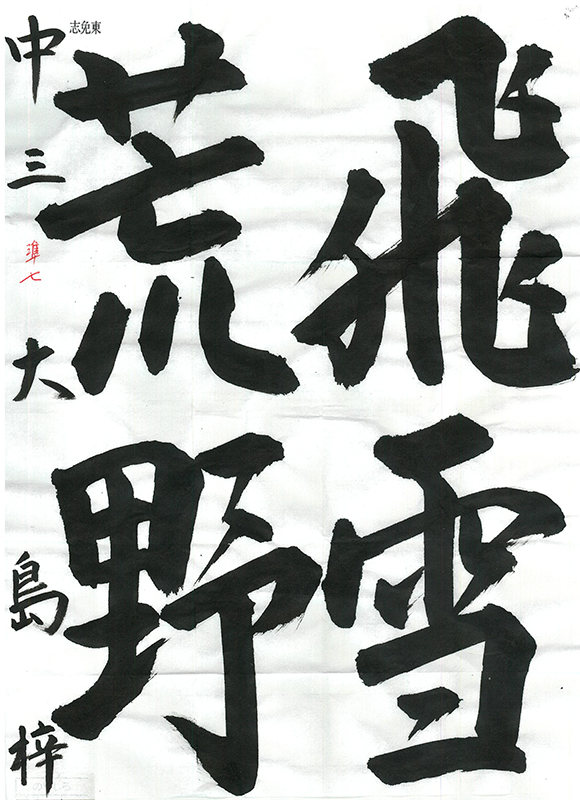 飛雪
荒野
東免志
中三 準七 大島梓